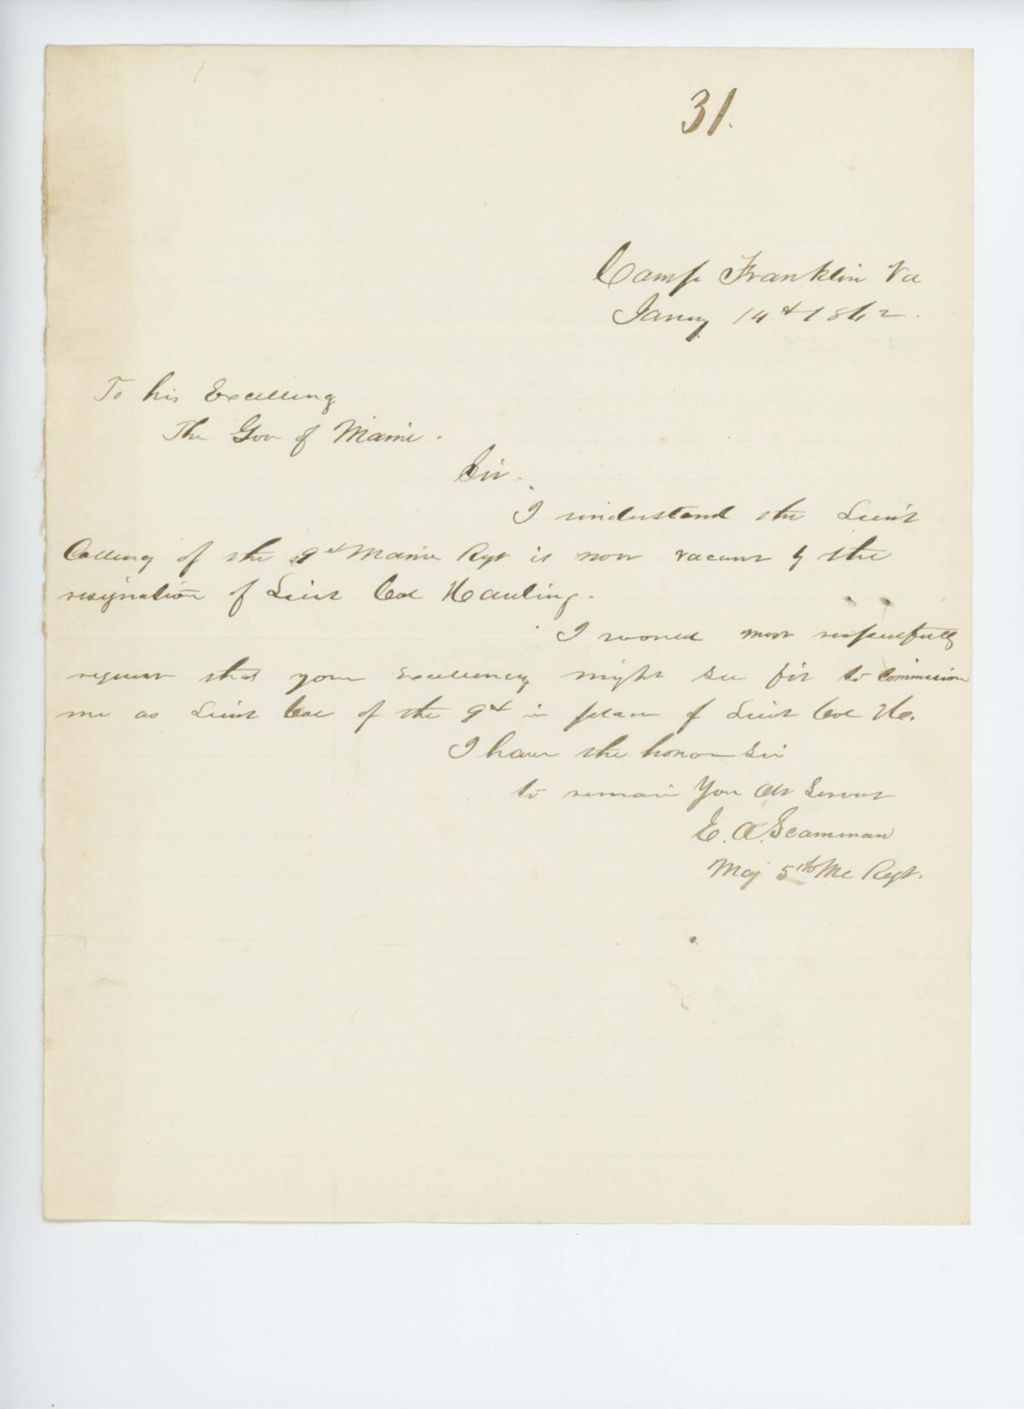 31.
Camp Franklin Va
Jany 14th 1862.
To his Excellency
The Gov of Maine.
Sir.
I understand the Lieut
Colency of the 9th Maine Regt is now vacant by the
resignation of Lieut Col Harding.
I would most respectfully
request that your Excellency might see fit to commission
me as Lieut Col of the 9th in place of Lieut Col H.
I have the honor Sir
to remain Your Obt Servant
E. A. Scamman
Maj 5th Me Regt.